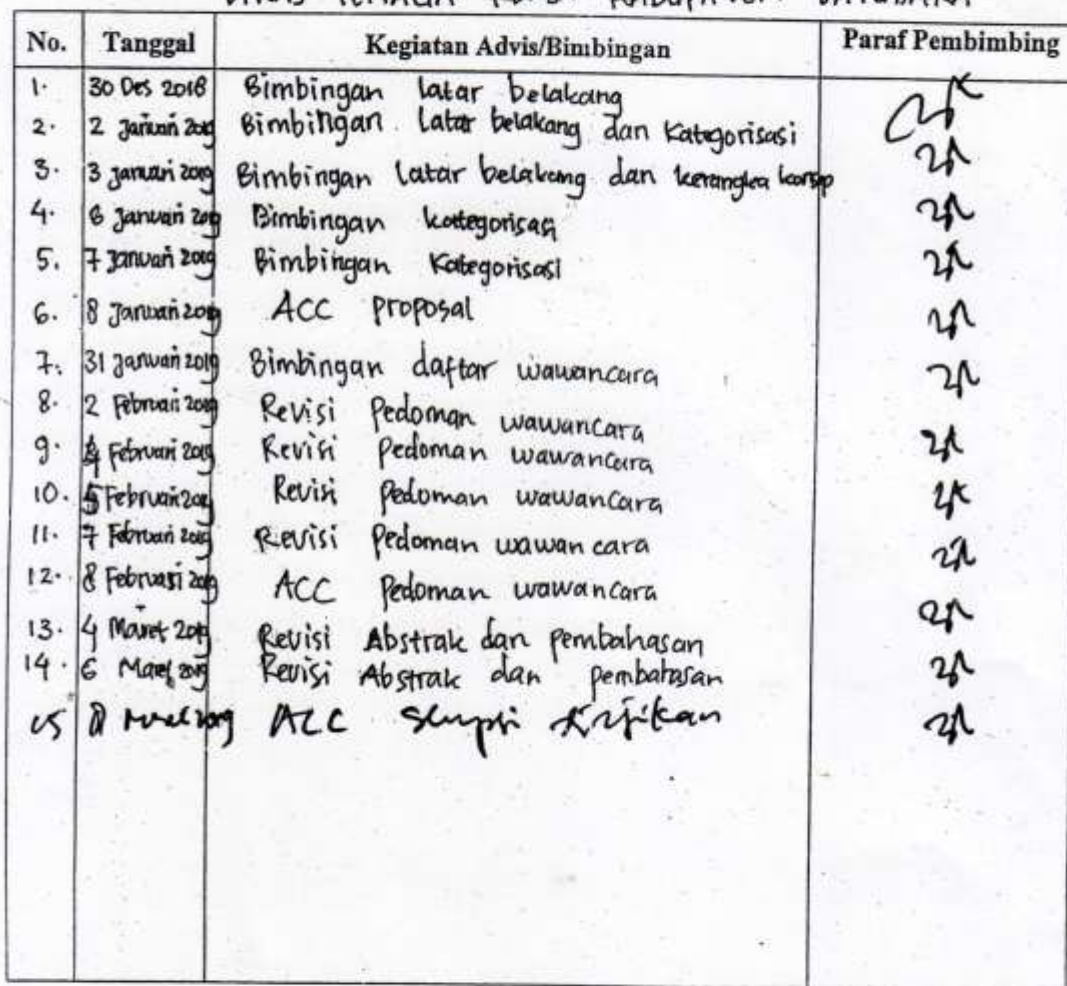 No. Tanggal Kegiatan Advis/Bimbingan Paraf Pembimbing
1. 30 Des 2018 Bimbingan latar belakang
2. 2 Januari 2019 Bimbingan latar belakang dan Kategorisasi
3. 3 Januari 2019 Bimbingan latar belakang dan kerangka konsep
4. 6 Januari 2019 Bimbingan kategorisasi
5. 7 Januari 2019 Bimbingan Kategorisasi
6. 8 Januari 2019 ACC proposal
7. 31 Januari 2019 Bimbingan daftar wawancara
8. 2 Februari 2019 Revisi Pedoman wawancara
9. 4 Februari 2019 Revisi Pedoman wawancara
10. 5 Februari 2019 Revisi Pedoman wawancara
11. 7 Februari 2019 Revisi Pedoman wawancara
12. 8 Februari 2019 ACC Pedoman wawancara
13. 4 Maret 2019 Revisi Abstrak dan pembahasan
14. 6 Maret 2019 Revisi Abstrak dan pembahasan
15 8 Maret 2019 ACC Skripsi